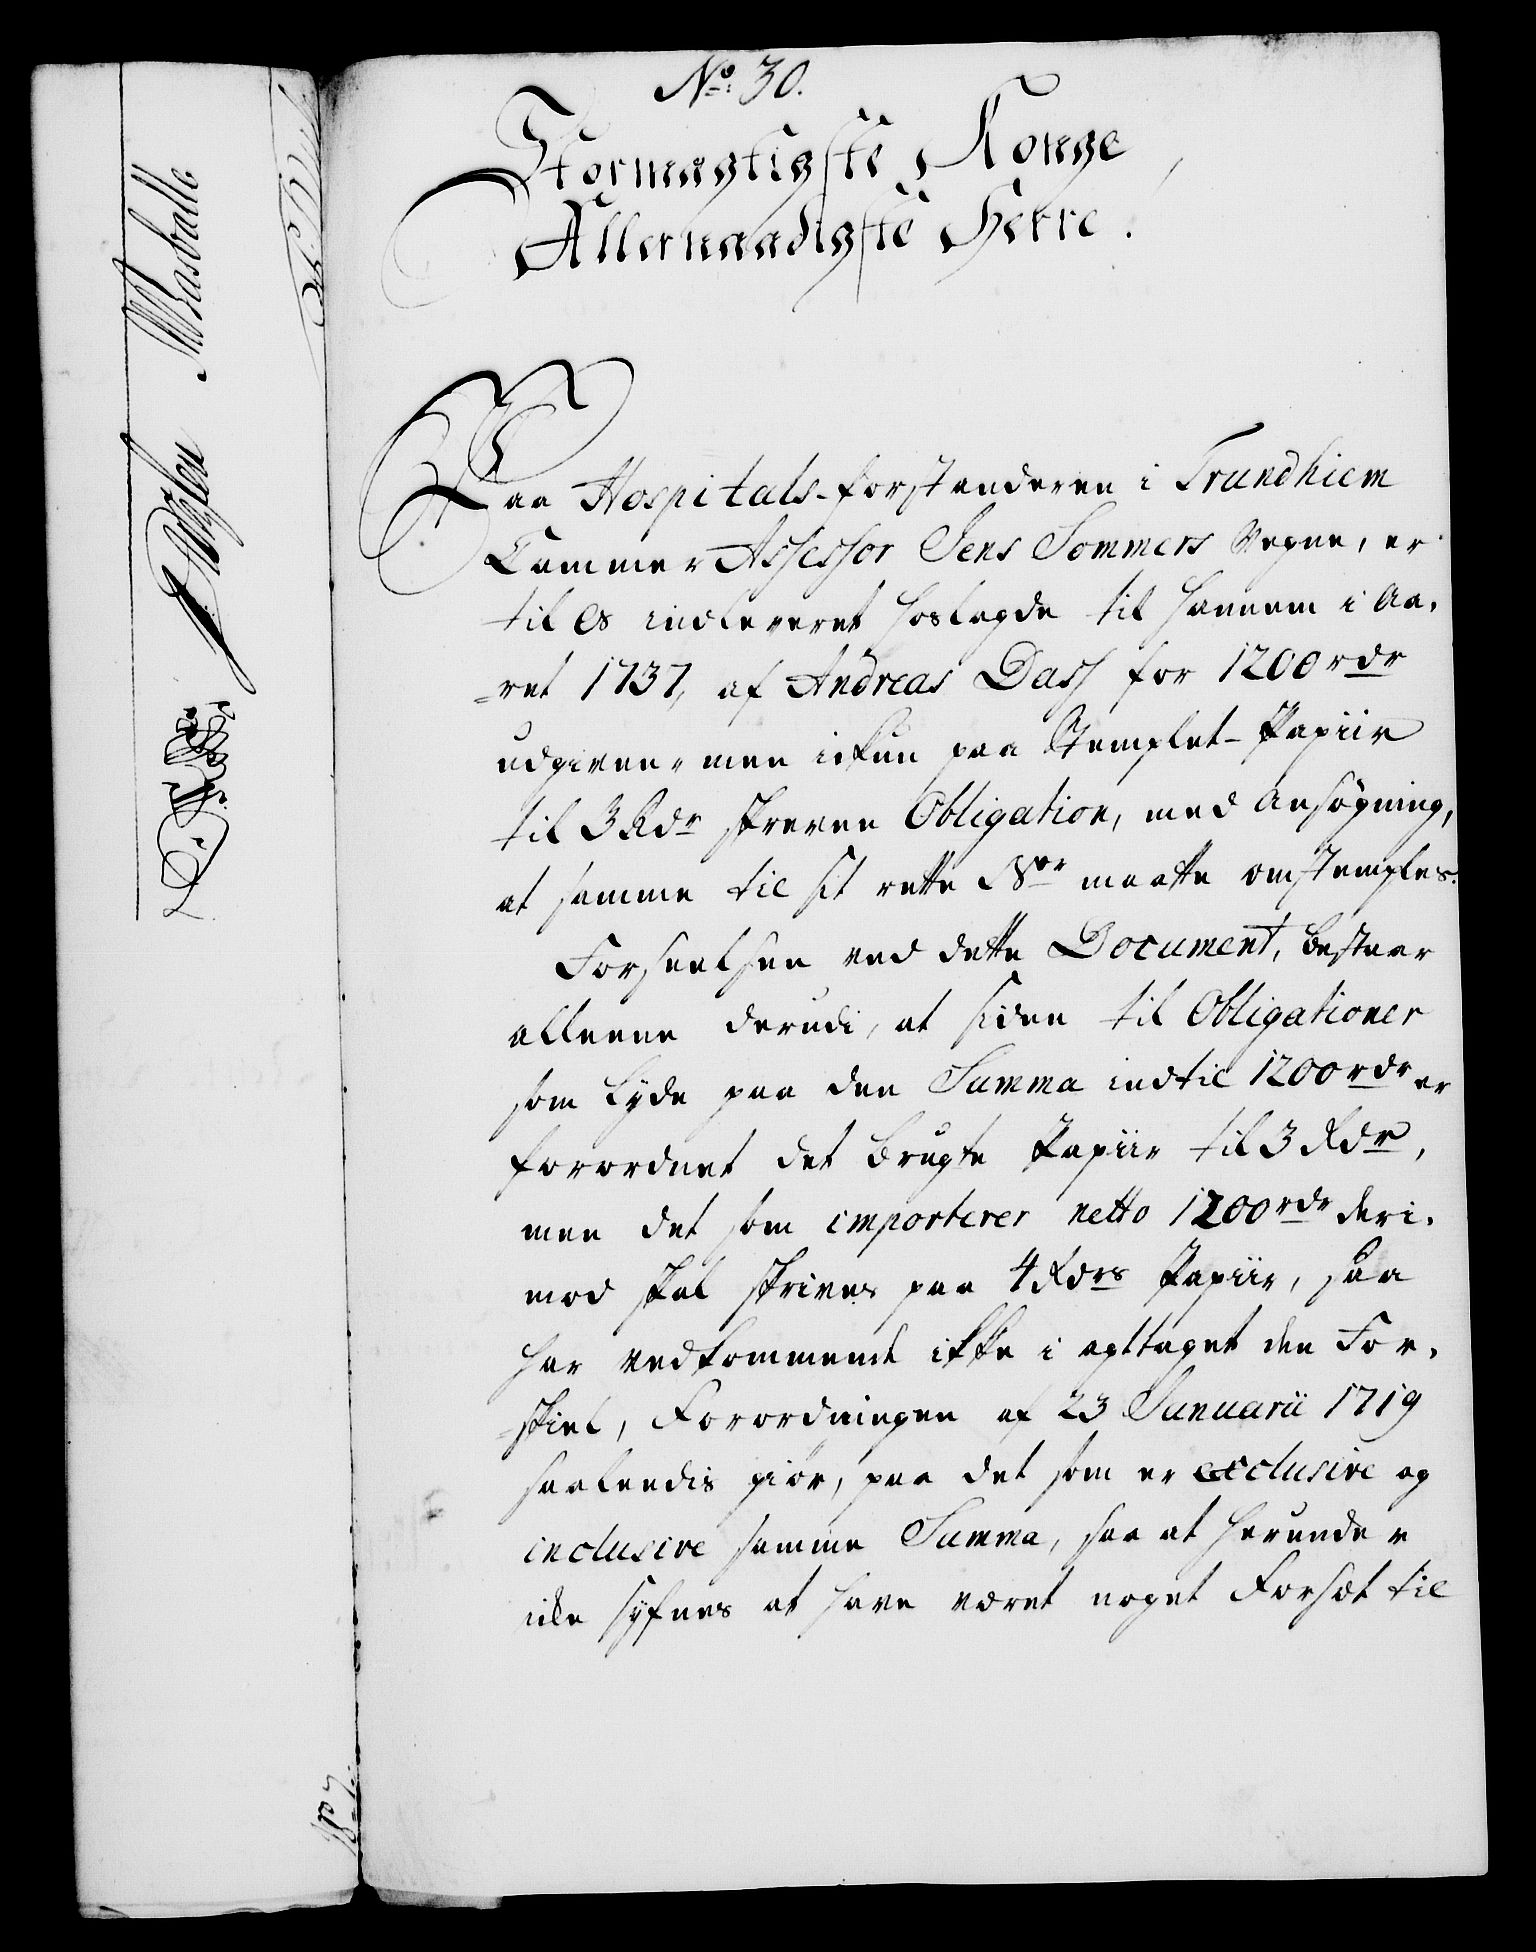 No. 30.
Stormægtigste Konge,
Allernaadigste Herre.
Paa Hospitals-forstanderen i Trundhiem
Cammer Assessor Jens Sommers Vegne, er
til os indleveret hoslagde til hannem i Aa-
-ret 1737, af Andreas Dass for 1200 rdr
udgiven, men ickun paa Stemplet-Papiir
til 3 Rdr skreven Obligation, med Ansøgning,
at samme til sit rette Nor maatte omstemples.
Forseelsen ved dette Document, bestaar
alleene derudi, at siden til Obligationer
som lyde paa den Summa indtil 1200 rdr er
forordnet det brugte Papiir til 3 Rdr,
men det som importerer netto 1200 rdr deri-
mod skal skrives paa 4 Rdrs Papiir, saa
har vedkommende ikke i agttaget den For-
-skiel, Forordningen af 23 Januarii 1719
saaleedis giør, paa det som er exclusive og
inclusive samme Summa, saa at herunder
icke syfnes at have været noget Forsæt til